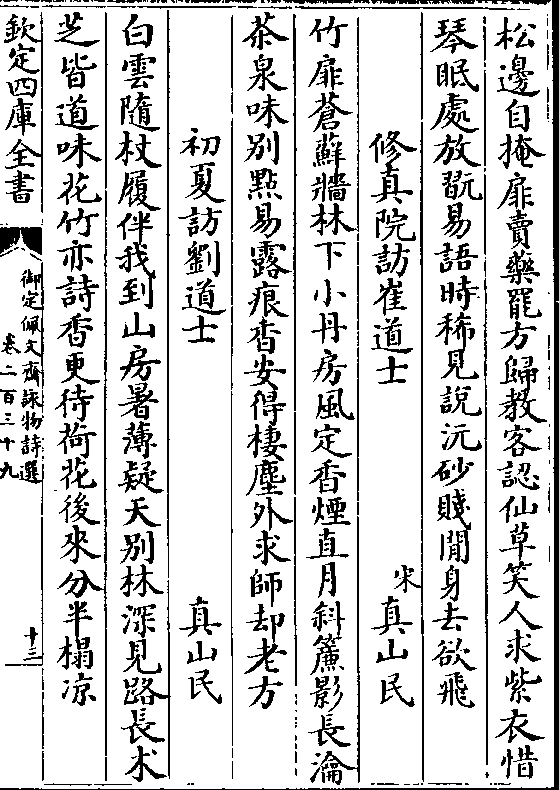 松邊自掩扉賣藥罷方歸教客認仙草笑人求紫衣惜
琴眠處放翫易語時稀見說沅砂賤閒身去欲飛
修真院訪崔道士 宋真山民
竹扉蒼蘚牆林下小丹房風定香煙直月斜簾影長瀹
茶泉味别點易露痕香安得棲塵外求師却老方
初夏訪劉道士 真山民
白雲隨杖履伴我到山房暑薄疑天别林深見路長术
芝皆道味花竹亦詩香更待荷花後來分半榻凉
欽定四庫全書
御定佩文齋詠物詩選
卷二百三十九
十三